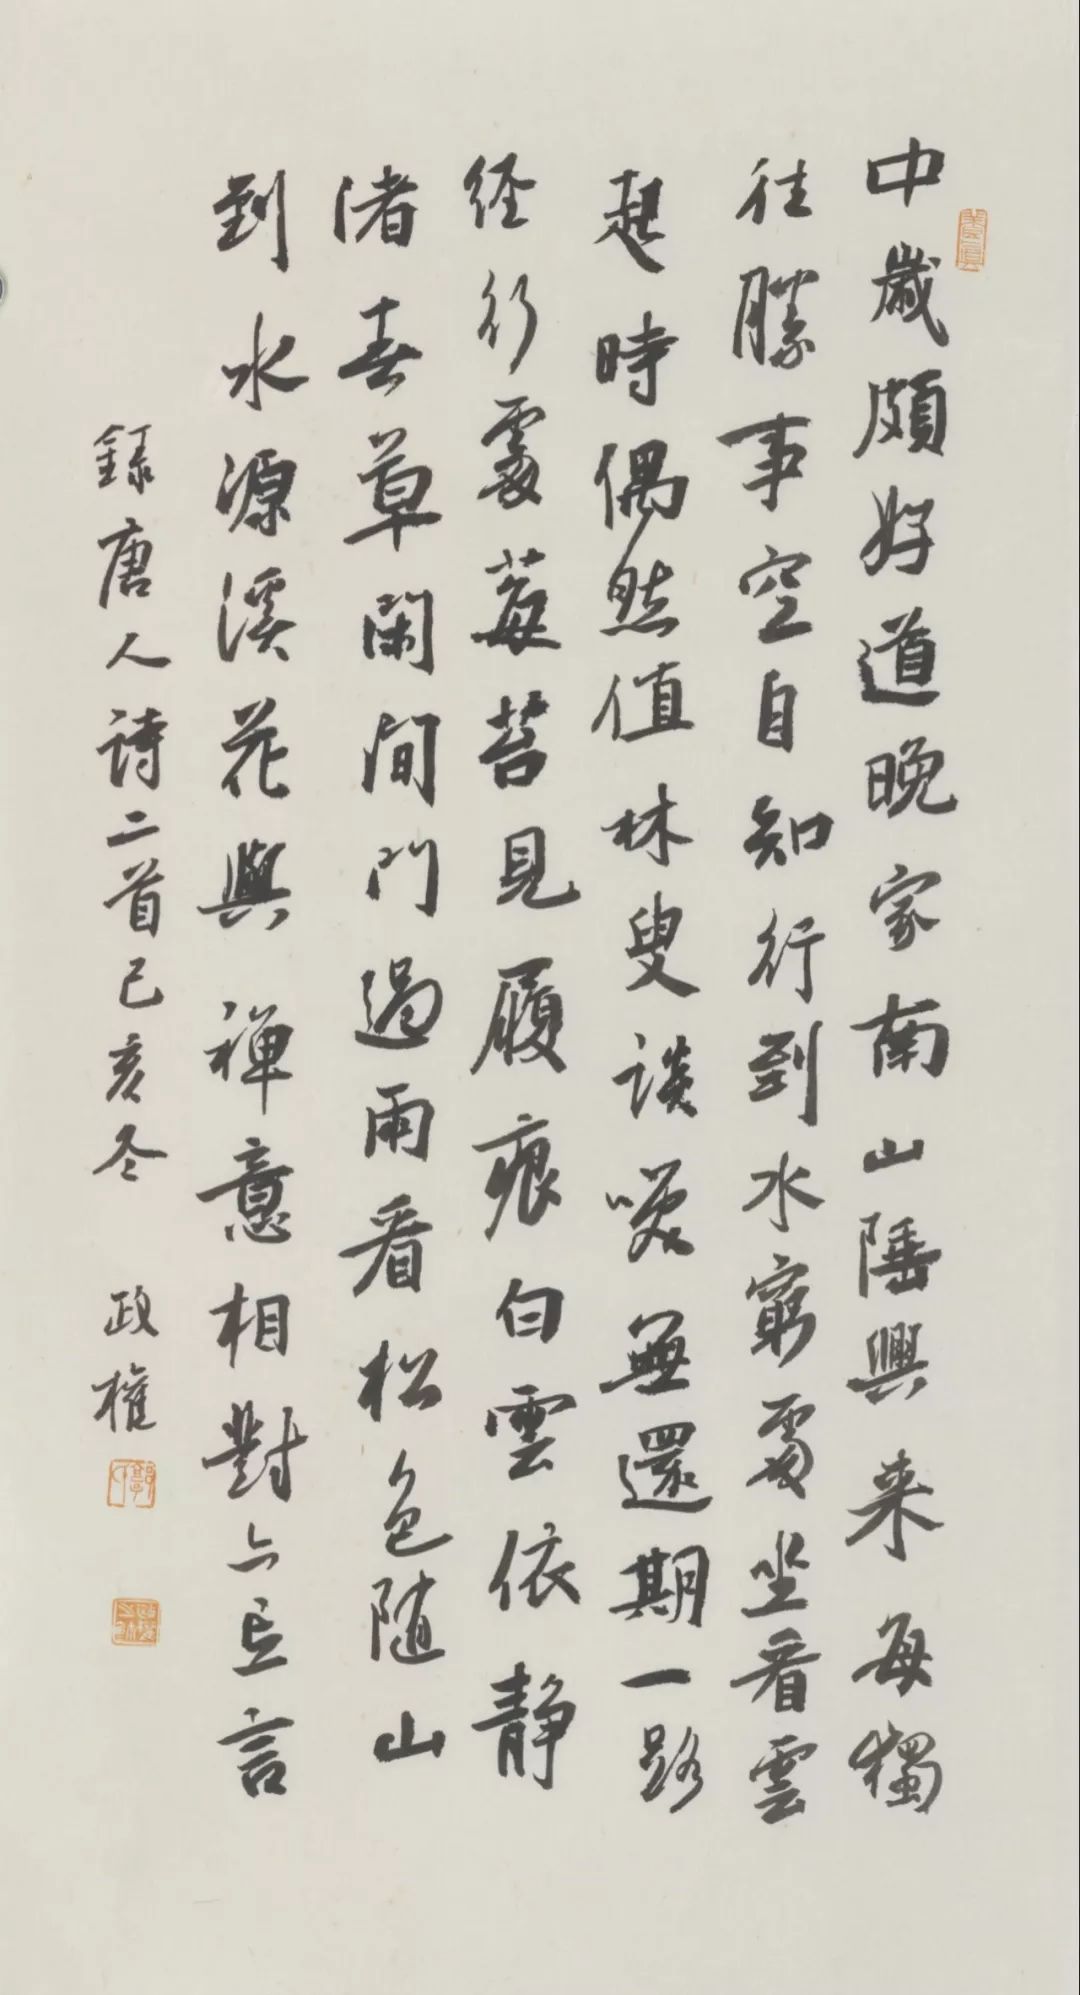 中歲頗好道晚家南山陲興来每獨
往勝事空自知行到水窮處坐看雲
起時偶然值林叟談笑無還期一路
经行處莓苔見履痕白雲依静
渚春草閑閒門過雨看松色随山
到水源溪花與禅意相對亦忘言
録唐人诗二首己亥冬 政權